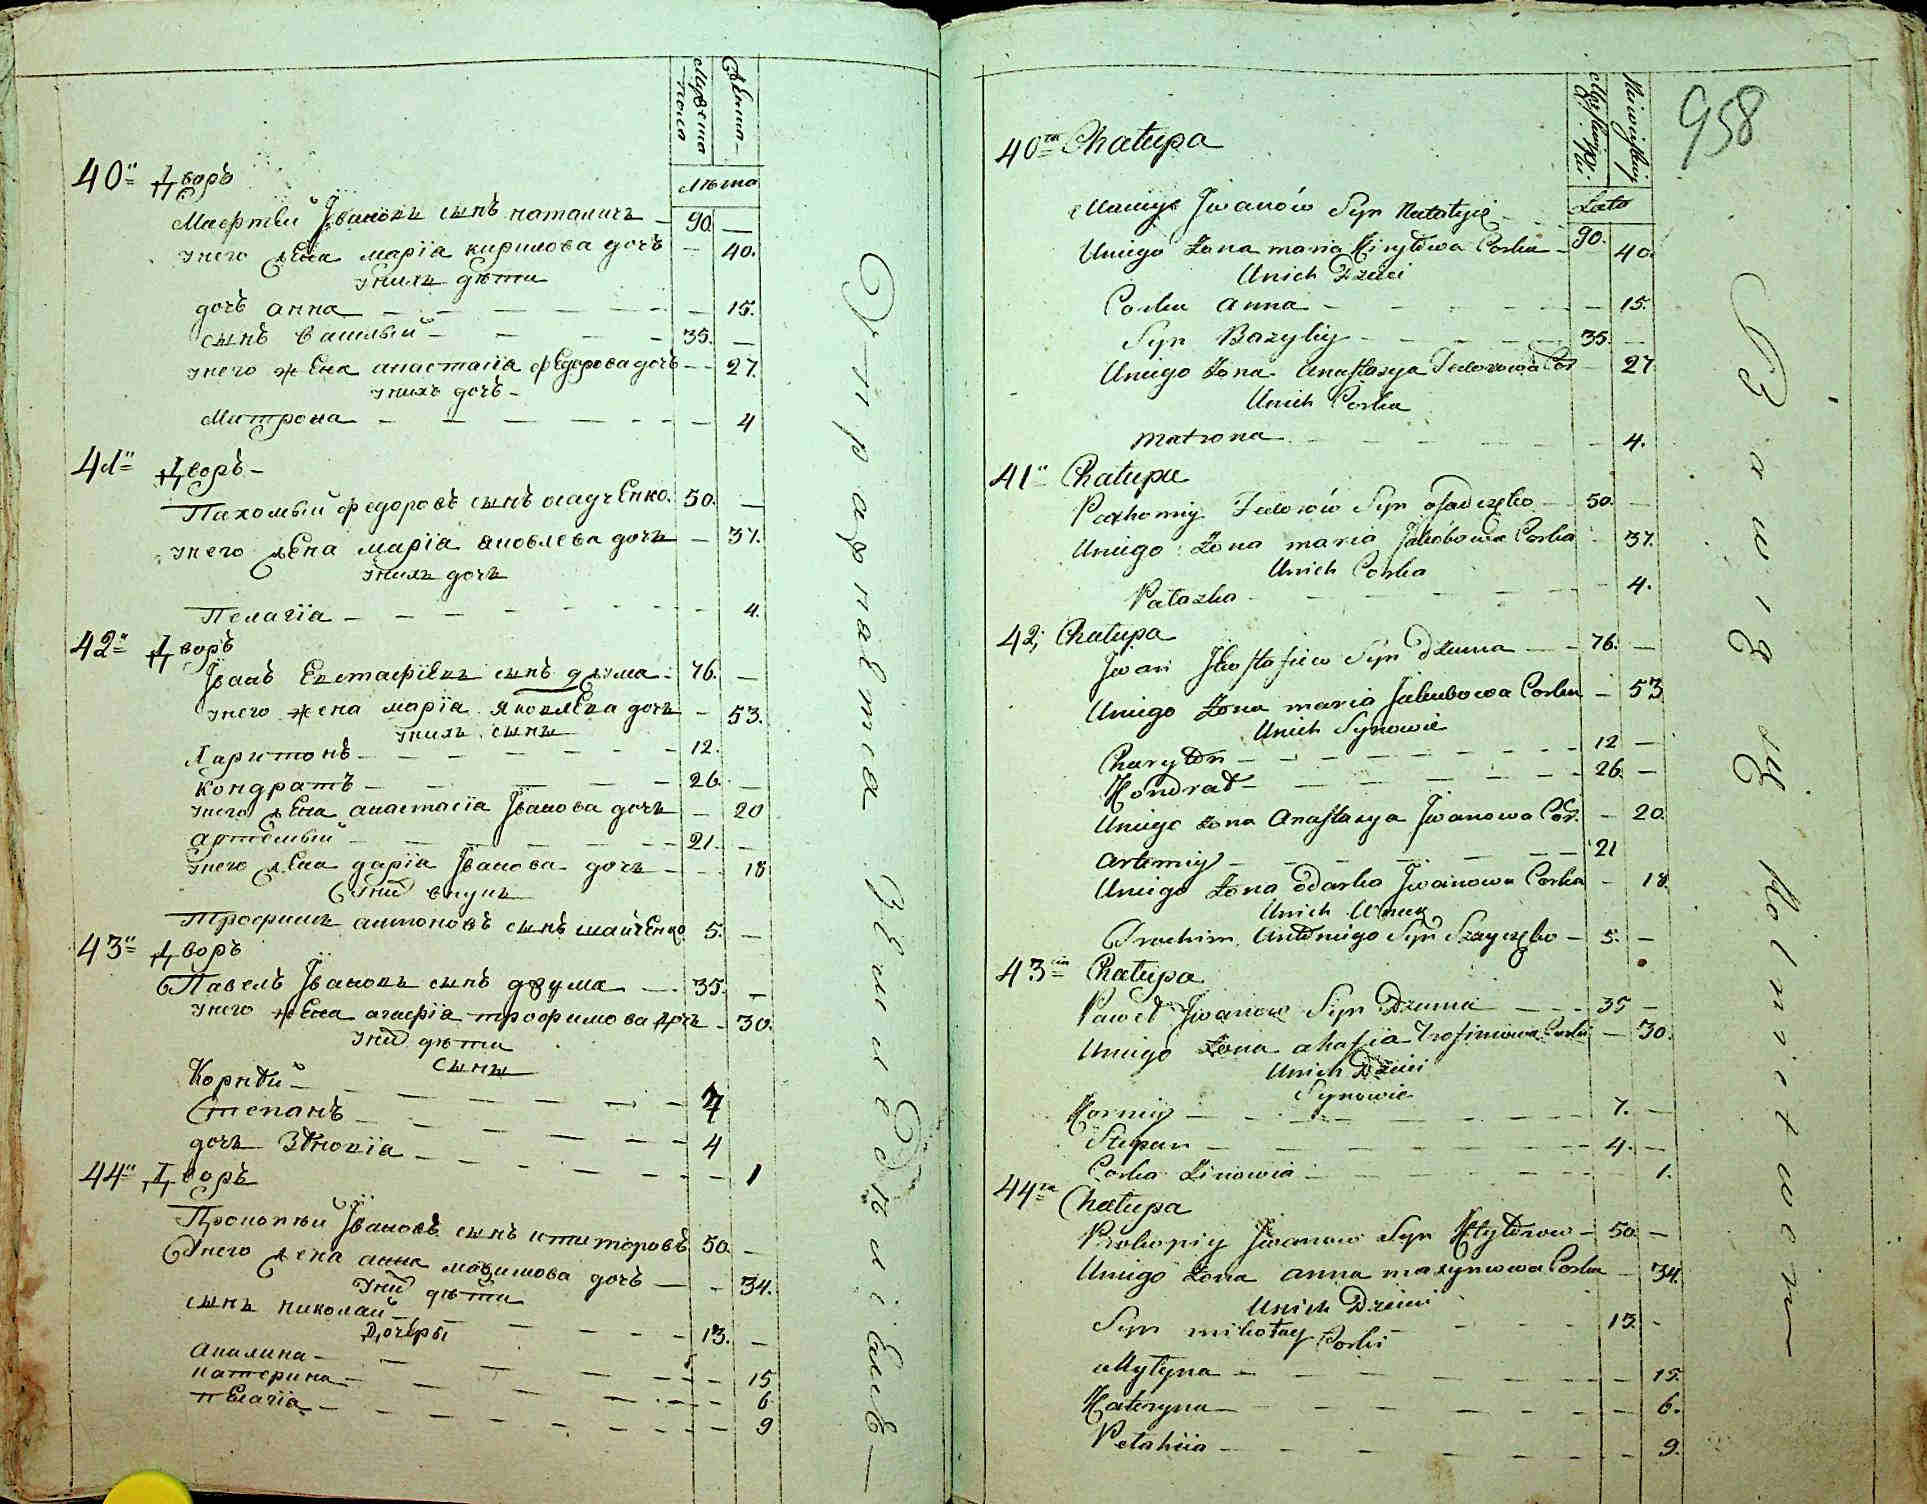 Мужеска пола
Женска
Лѣта
40й Дворъ
Мафтѣй Івановъ сынъ наталичъ — 90. —
унего жена марїа кирилова дочъ — 40.
унихъ дѣти
дочъ анна — 15.
сынъ василый — 35. —
унего жена анастасїа федорова дочъ — 27.
унихъ дочъ —
Матрона — 4
41й Дворъ —
Пахомый федоровъ сынъ осадченко. 50. —
унего жена марїа яковлева дочъ — 37.
унихъ дочъ
Пелагїа — 4.
42й Дворъ
Іванъ Евстафїевъ сынъ джума — 76. —
унего жена марїа яковлева дочъ — 53.
унихъ сыны
Харитонъ — 12.
кондратъ — 26. —
унего жена анастасїа Іванова дочъ — 20
артемый — 21. —
унего жена дарїа Іванова дочъ — 18
Униⷯ внукъ
Трофимъ антоновъ сынъ шайченко. 5. —
43й Дворъ
Павелъ Івановъ сынъ джума — 35. —
унего жена агафїа трофимова дочъ — 30.
униⷯ дѣти
сыны
Корнѣй — 7
Степанъ — 4
дочъ Зѣновїа — 1
44й Дворъ
Прокопый Івановъ сынъ ктиторовъ 50. —
Унего жена анна мазимова дочъ — 34.
униⷯ дѣти
сынъ николай — 13. —
Дочеры
Акилина — 15
катерина — 6
пелагїа — 9
Управителъ
958
Męskiey Płci
Niewieskiey
Lata
40ta Chałupa
Iwanów Syn Natalycz — 90.
Uniego Żona maria Kiryłowa Corka — 40.
Unich Dzieci
Corka Anna — 15.
Syn Bazyliy — 35. —
Uniego Żona Anastasya Fedorowa Cor — 27.
Unich Corka
Matrona — 4.
41a Chałupa
Pachomiy Fedorów Syn osadczeko — 50. —
Uniego Żona maria Jakóbowa Corka — 37.
Unich Corka
Pałazka — 4.
42; Chałupa
Jwan Jewstafiew Syn Dżuma — 76. —
Uniego Żona maria Jakubowa Corka — 53
Unich Synowie
Charyton — 12 —
Kondrat — 26. —
Uniego żona Anastasya Jwanowa Cor. — 20.
Artemiy — 21
Uniego Żona odarka Jwanowa Corka — 18.
Unich Wnuk
Trochim Antoniego Syn Szayczeko — 5. —
43cia Chałupa
Paweł Jwanow Syn Dżuma — 35 —
Uniego Żona ahafia Trofimowa Corka — 30.
Unich Dzieci
Synowie
Korniy — 7. —
Stepan — 4. —
Corka Zinowia — 1.
44ta Chałupa
Prokopiy Jwanow Syn Ktytorow — 50. —
Uniego Żona anna maxymowa Corka — 34.
Unich Dzieci
Syn mikołay — 13. —
Corki
Akylyna — 15.
Kateryna — 6.
Pelahia — 9.